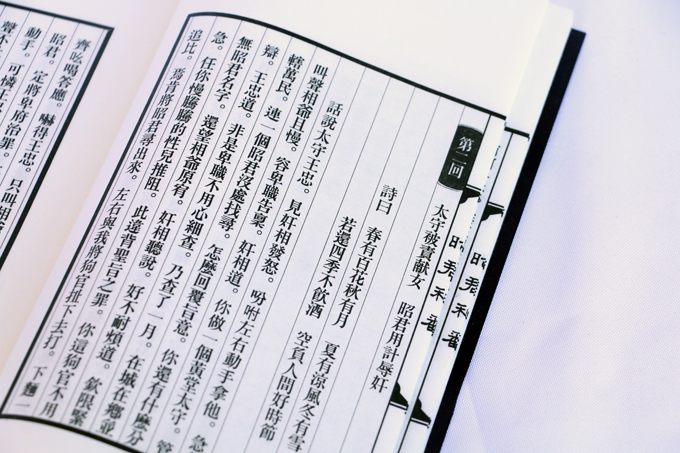 昭君和番
第二回
太守被責獻女　昭君用計辱奸
詩曰　春有百花秋有月　夏有涼風冬有雪
若還四季不飲酒　空負人間好時節
話說太守王忠。見奸相發怒。吩咐左右動手拿他。急
叫聲相爺且慢。容卑職告稟。奸相道。你做一個黃堂太守。管
轄萬民。連一個昭君沒處找尋。怎麼回覆旨意。你還有什麼分
辯。王忠道。非是卑職不用心細查。乃查了一月。在城在鄉並
無昭君名字。還望相爺原宥。奸相聽說。好不耐煩道。欽限緊
急。任你慢騰騰的性兒推阻。此違背聖旨之罪。你這狗官不用
追比。焉肯將昭君尋出來。左右與我將狗官扯下去打。下麵一
齊吆喝答應。嚇得王忠。只叫相爺
動手。定將卑府治罪。
昭君。可憐